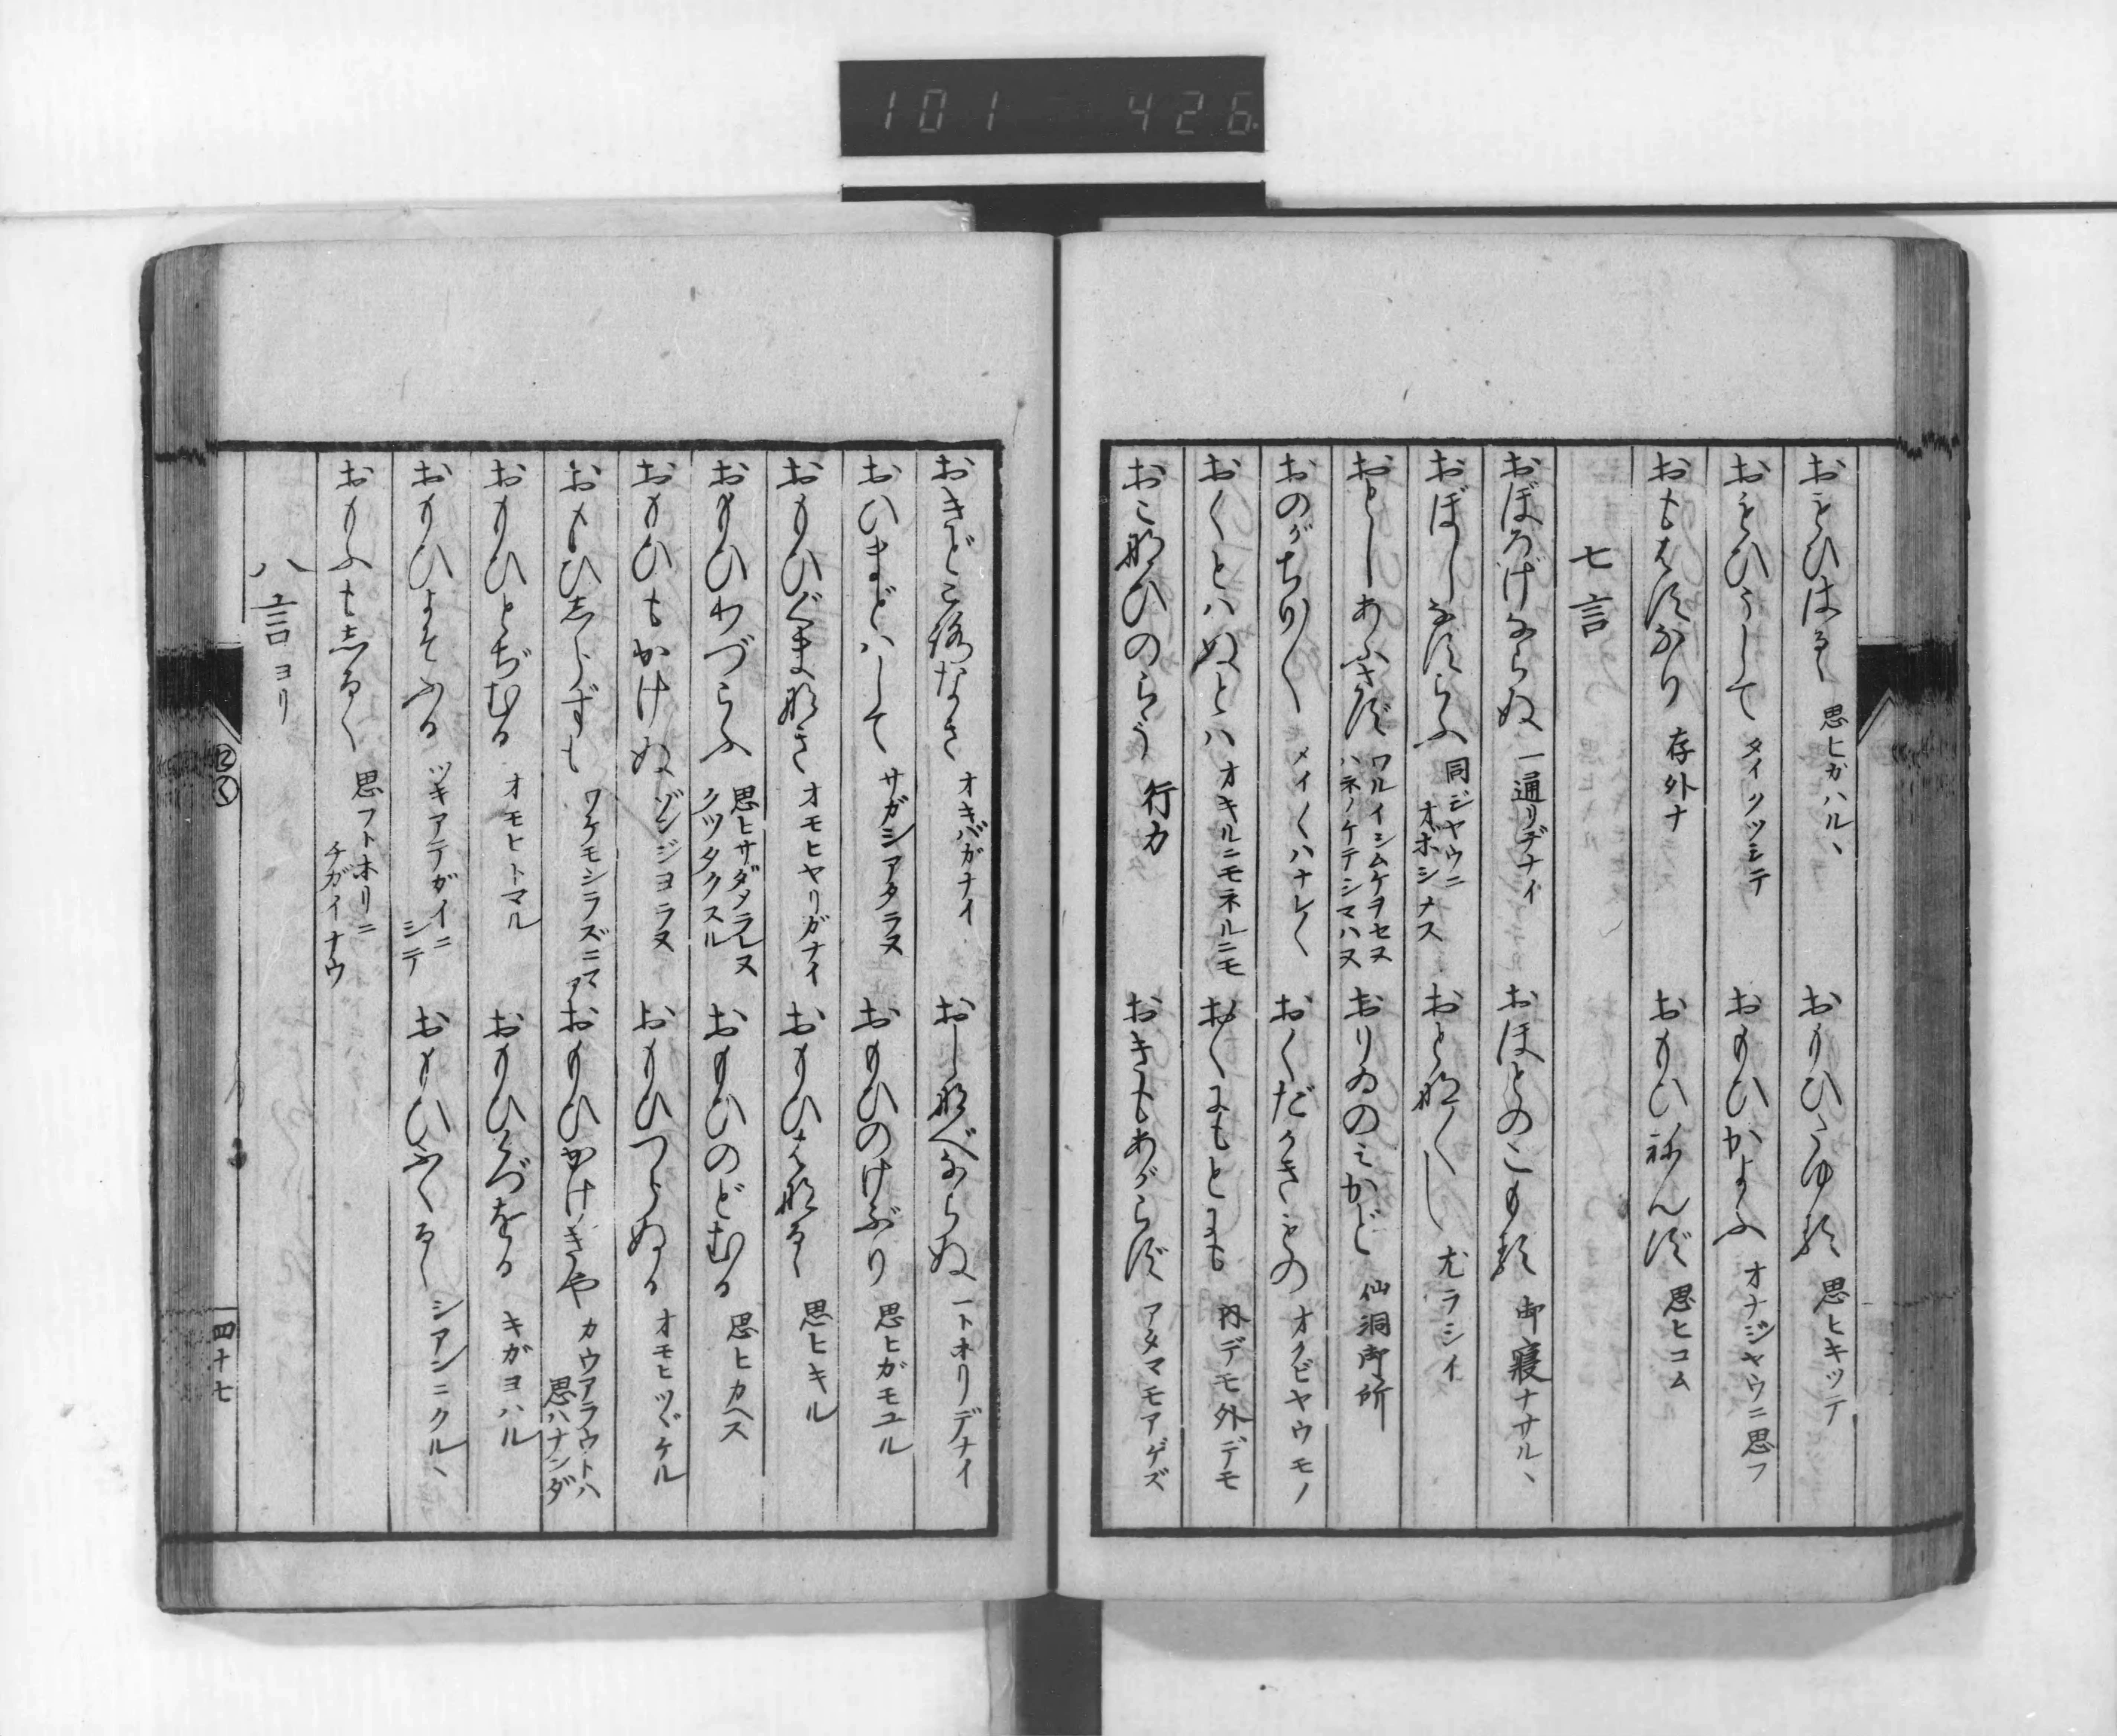 101 426
おもひはるゝ 思ヒガハルヽ
おもひたゆる 思ヒキツテ
おもひうして タイクツシテ
おもひかよふ オナジヤウニ思フ
おもはずなり 存外ナ
おもひねんず 思ヒコム
七言
おぼろげならぬ 一通リデナイ
おほとのこもる 御寝ナサルヽ
おぼしなずらふ 同ジヤウニオボシナス
おとな〳〵し 尤ラシイ
おとしあふさず ワルイシムケヲセヌ ハネノケテシマハヌ
おりゐのみかど 仙洞御所
おのがちり〳〵 メイ〳〵ハナレ〳〵
おくだかきもの オクビヤウモノ
おくとハぬとハ オキルニモネルニモ
おくにもとにも 内デモ外デモ
おこなひのらう 行力
おきもあがらず アタマモアゲズ
おきどころなさ オキバガナイ
おしなべならぬ 一トオリデナイ
おひまどハして サガシアタラヌ
おもひのけぶり 思ヒガモユル
おもひぐまなき オモヒヤリガナイ
おもひはなるゝ 思ヒキル
おもひわづらふ 思ヒサダメラレヌ クツタクスル
おもひのどむる 思ヒカヘス
おもひもかけぬ ゾンジヨラヌ
おもひつらぬる オモヒツヾケル
おもひしらずも ワケモシラズニマア
おもひかけきや カウアラウトハ思ハナンダ
おもひとぢむる オモヒトマル
おもひくづをる キガヨハル
おもひよそふる ツキアテガイニシテ
おもひふくるゝ シアンニクルヽ
おもふもしるく 思フトホリニ チガイナウ
八言ヨリ
四十七